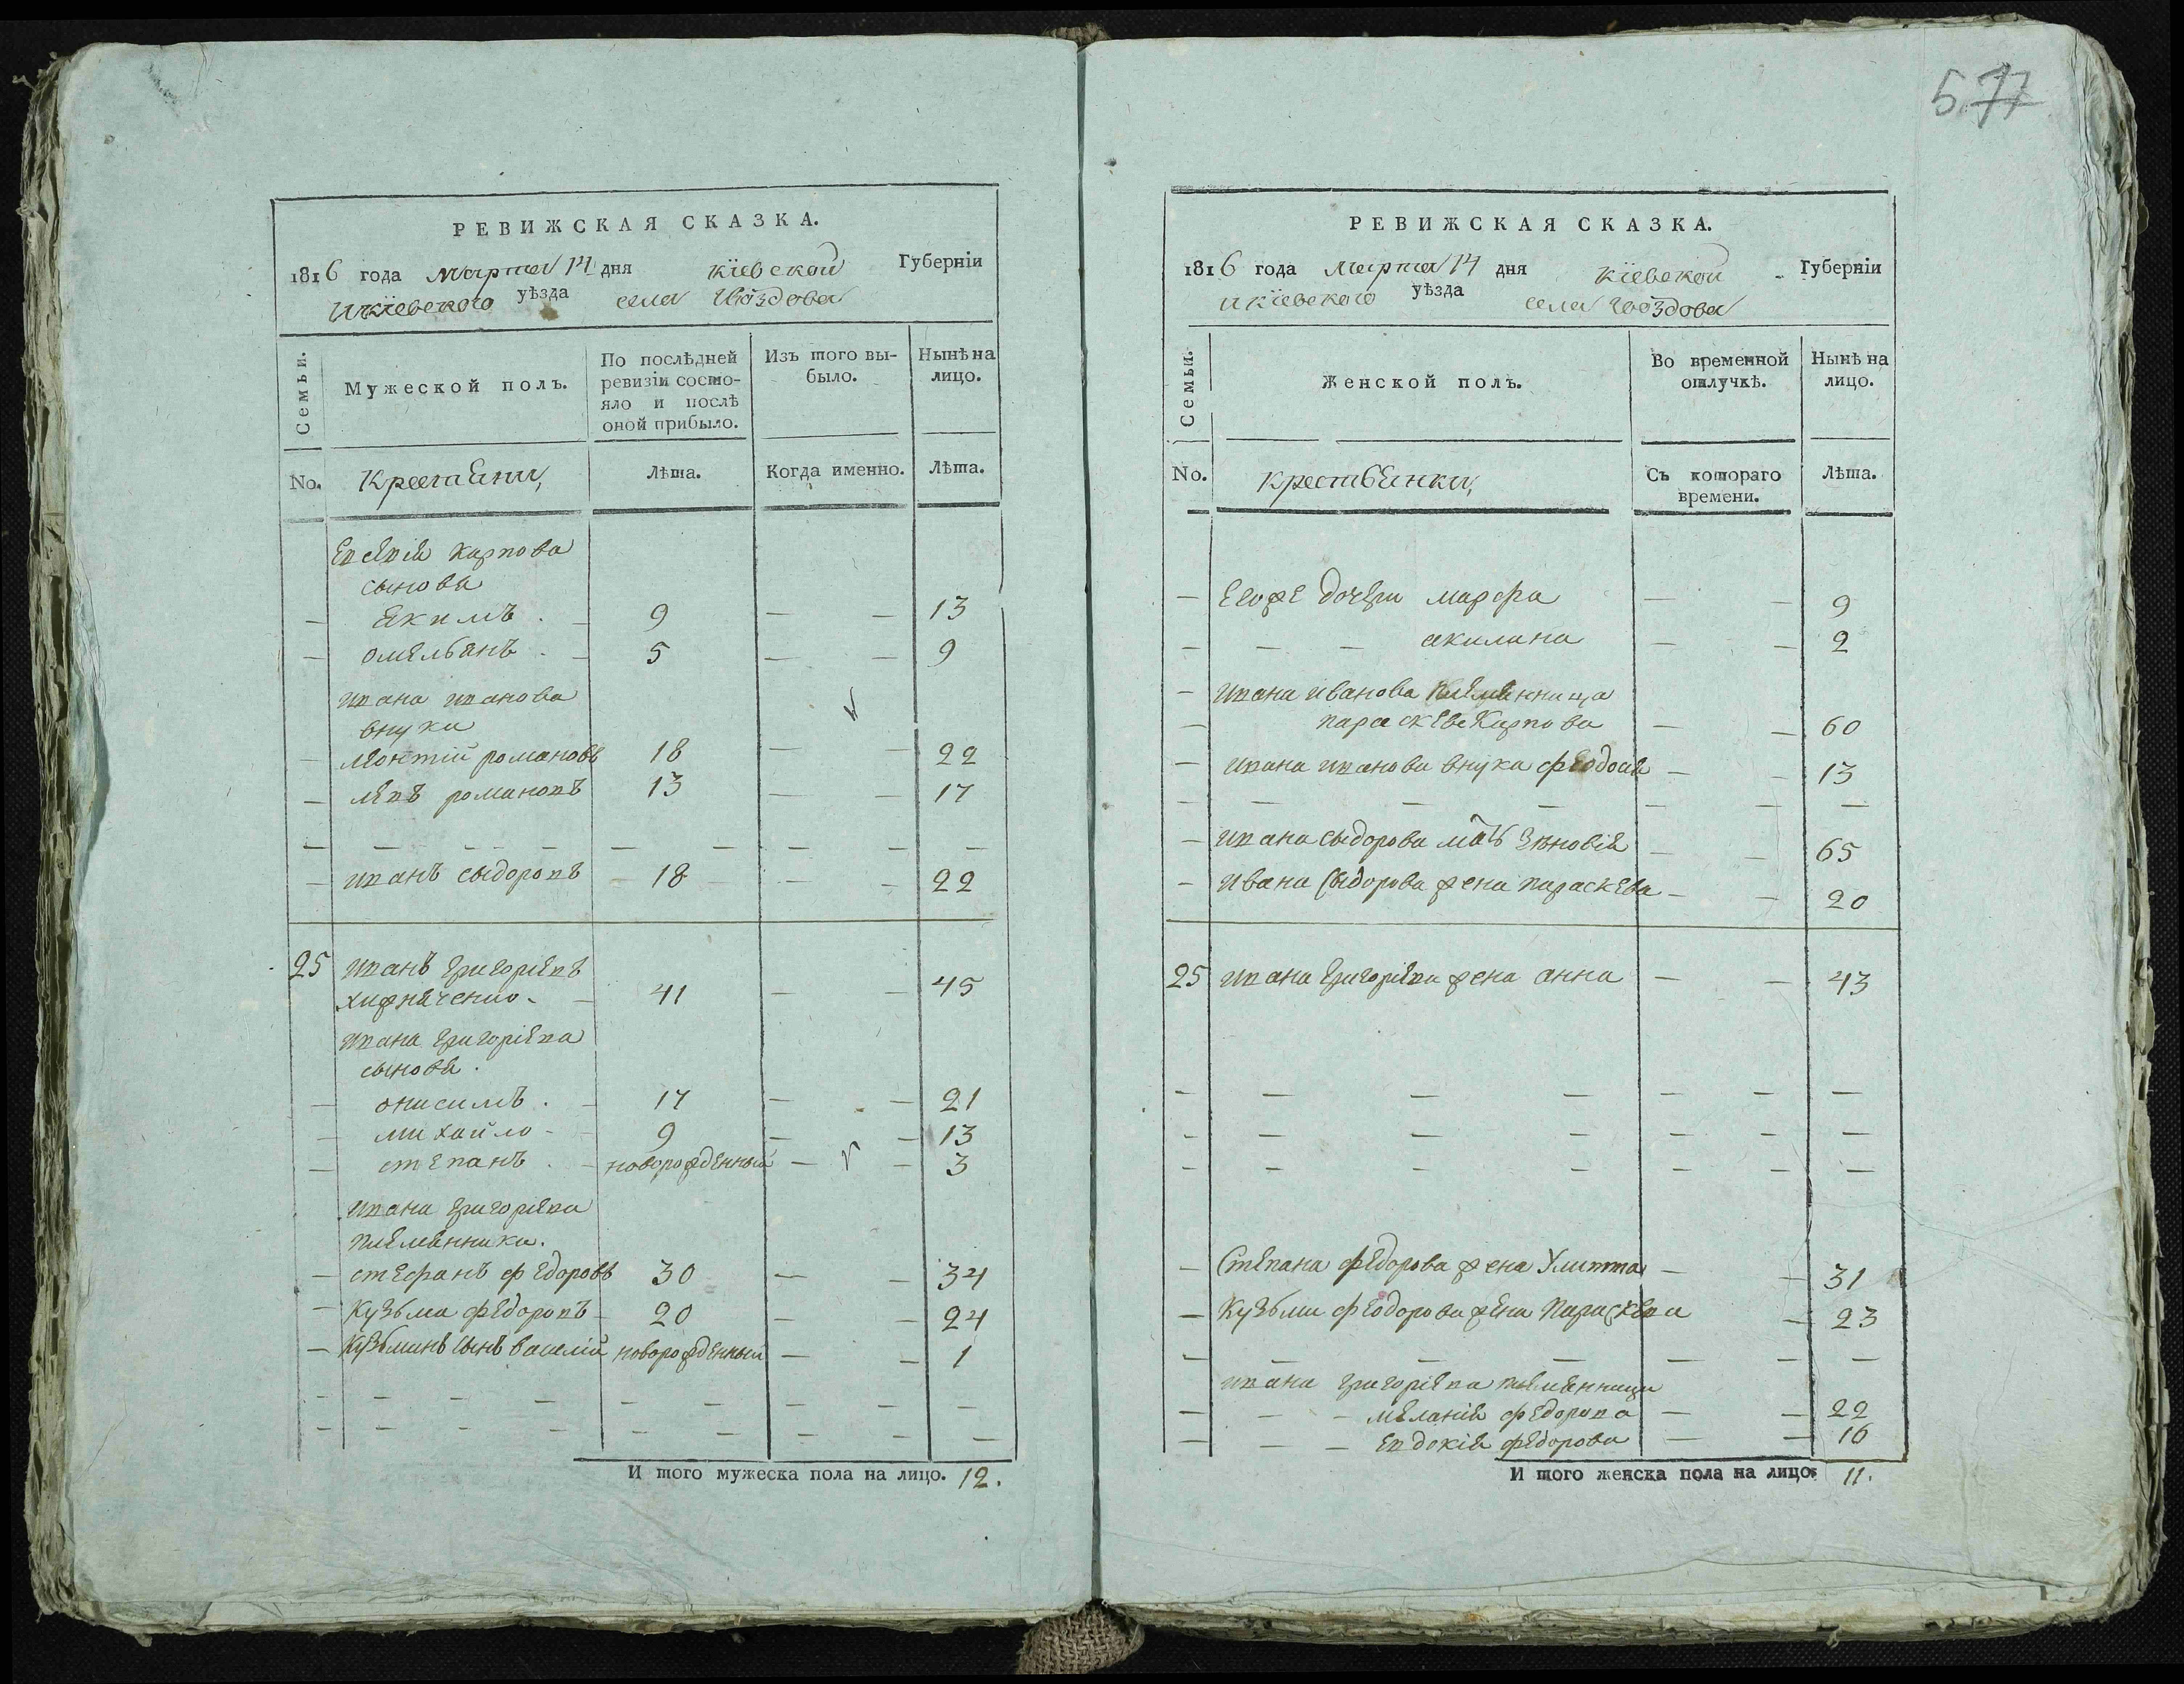 577
РЕВИЖСКАЯ СКАЗКА.
1816 года марта 14 дня кіевской Губерніи
икіевского уѣзда села Гвоздова
Семьи.
Мужеской полъ.
По послѣдней
ревизіи состо-
яло и послѣ
оной прибыло.
Изъ того вы-
было.
Нынѣ на
лицо.
No. Лѣта. Когда именно. Лѣта.
Евсѣвія карпова
сыновя
Якимъ . 9 — — 13
омельянъ . 5 — — 9
ивана иванова
внуки
леонтій романовъ 18 — — 22
левъ романовъ 13 — — 17
иванъ сыдоровъ 18 — — 22
25 иванъ григоріевъ
41 — — 45
ивана григоріева
сыновя .
онисимъ . 17 — — 21
михайло - 9 — — 13
степанъ . новорожденный — — 3
ивана григоріева
племянники.
стефанъ федоровъ 30 — — 34
Кузьма федоровъ 20 — — 24
Кузьминъ сынъ василій новорожденный — — 1
И того мужеска пола на лицо. 12.
РЕВИЖСКАЯ СКАЗКА.
1816 года марта 14 дня кіевской Губерніи
икіевского уѣзда села Гвоздова
Семьи.
Женской полъ.
Во временной
отлучкѣ.
Нынѣ на
лицо.
No. крестьянки, Съ котораго
времени. Лѣта.
— Егоже дочери марфа — — 9
— — — акилина — — 2
— ивана иванова племянница
— параскева Карпова — — 60
— ивана иванова внука феодосія — — 13
— ивана сыдорова мать Зѣновія — — 65
— ивана Сыдорова жена параскева — — 20
25 ивана григоріева жена анна — — 43
— Степана федорова жена Улитта — — 31
— Кузьми феодорова жена Параскева — 23
ивана григоріева племянници
— — — меланія федорова — — 22
— — — евдокія федорова — — 16
И того женска пола на лицо: 11.